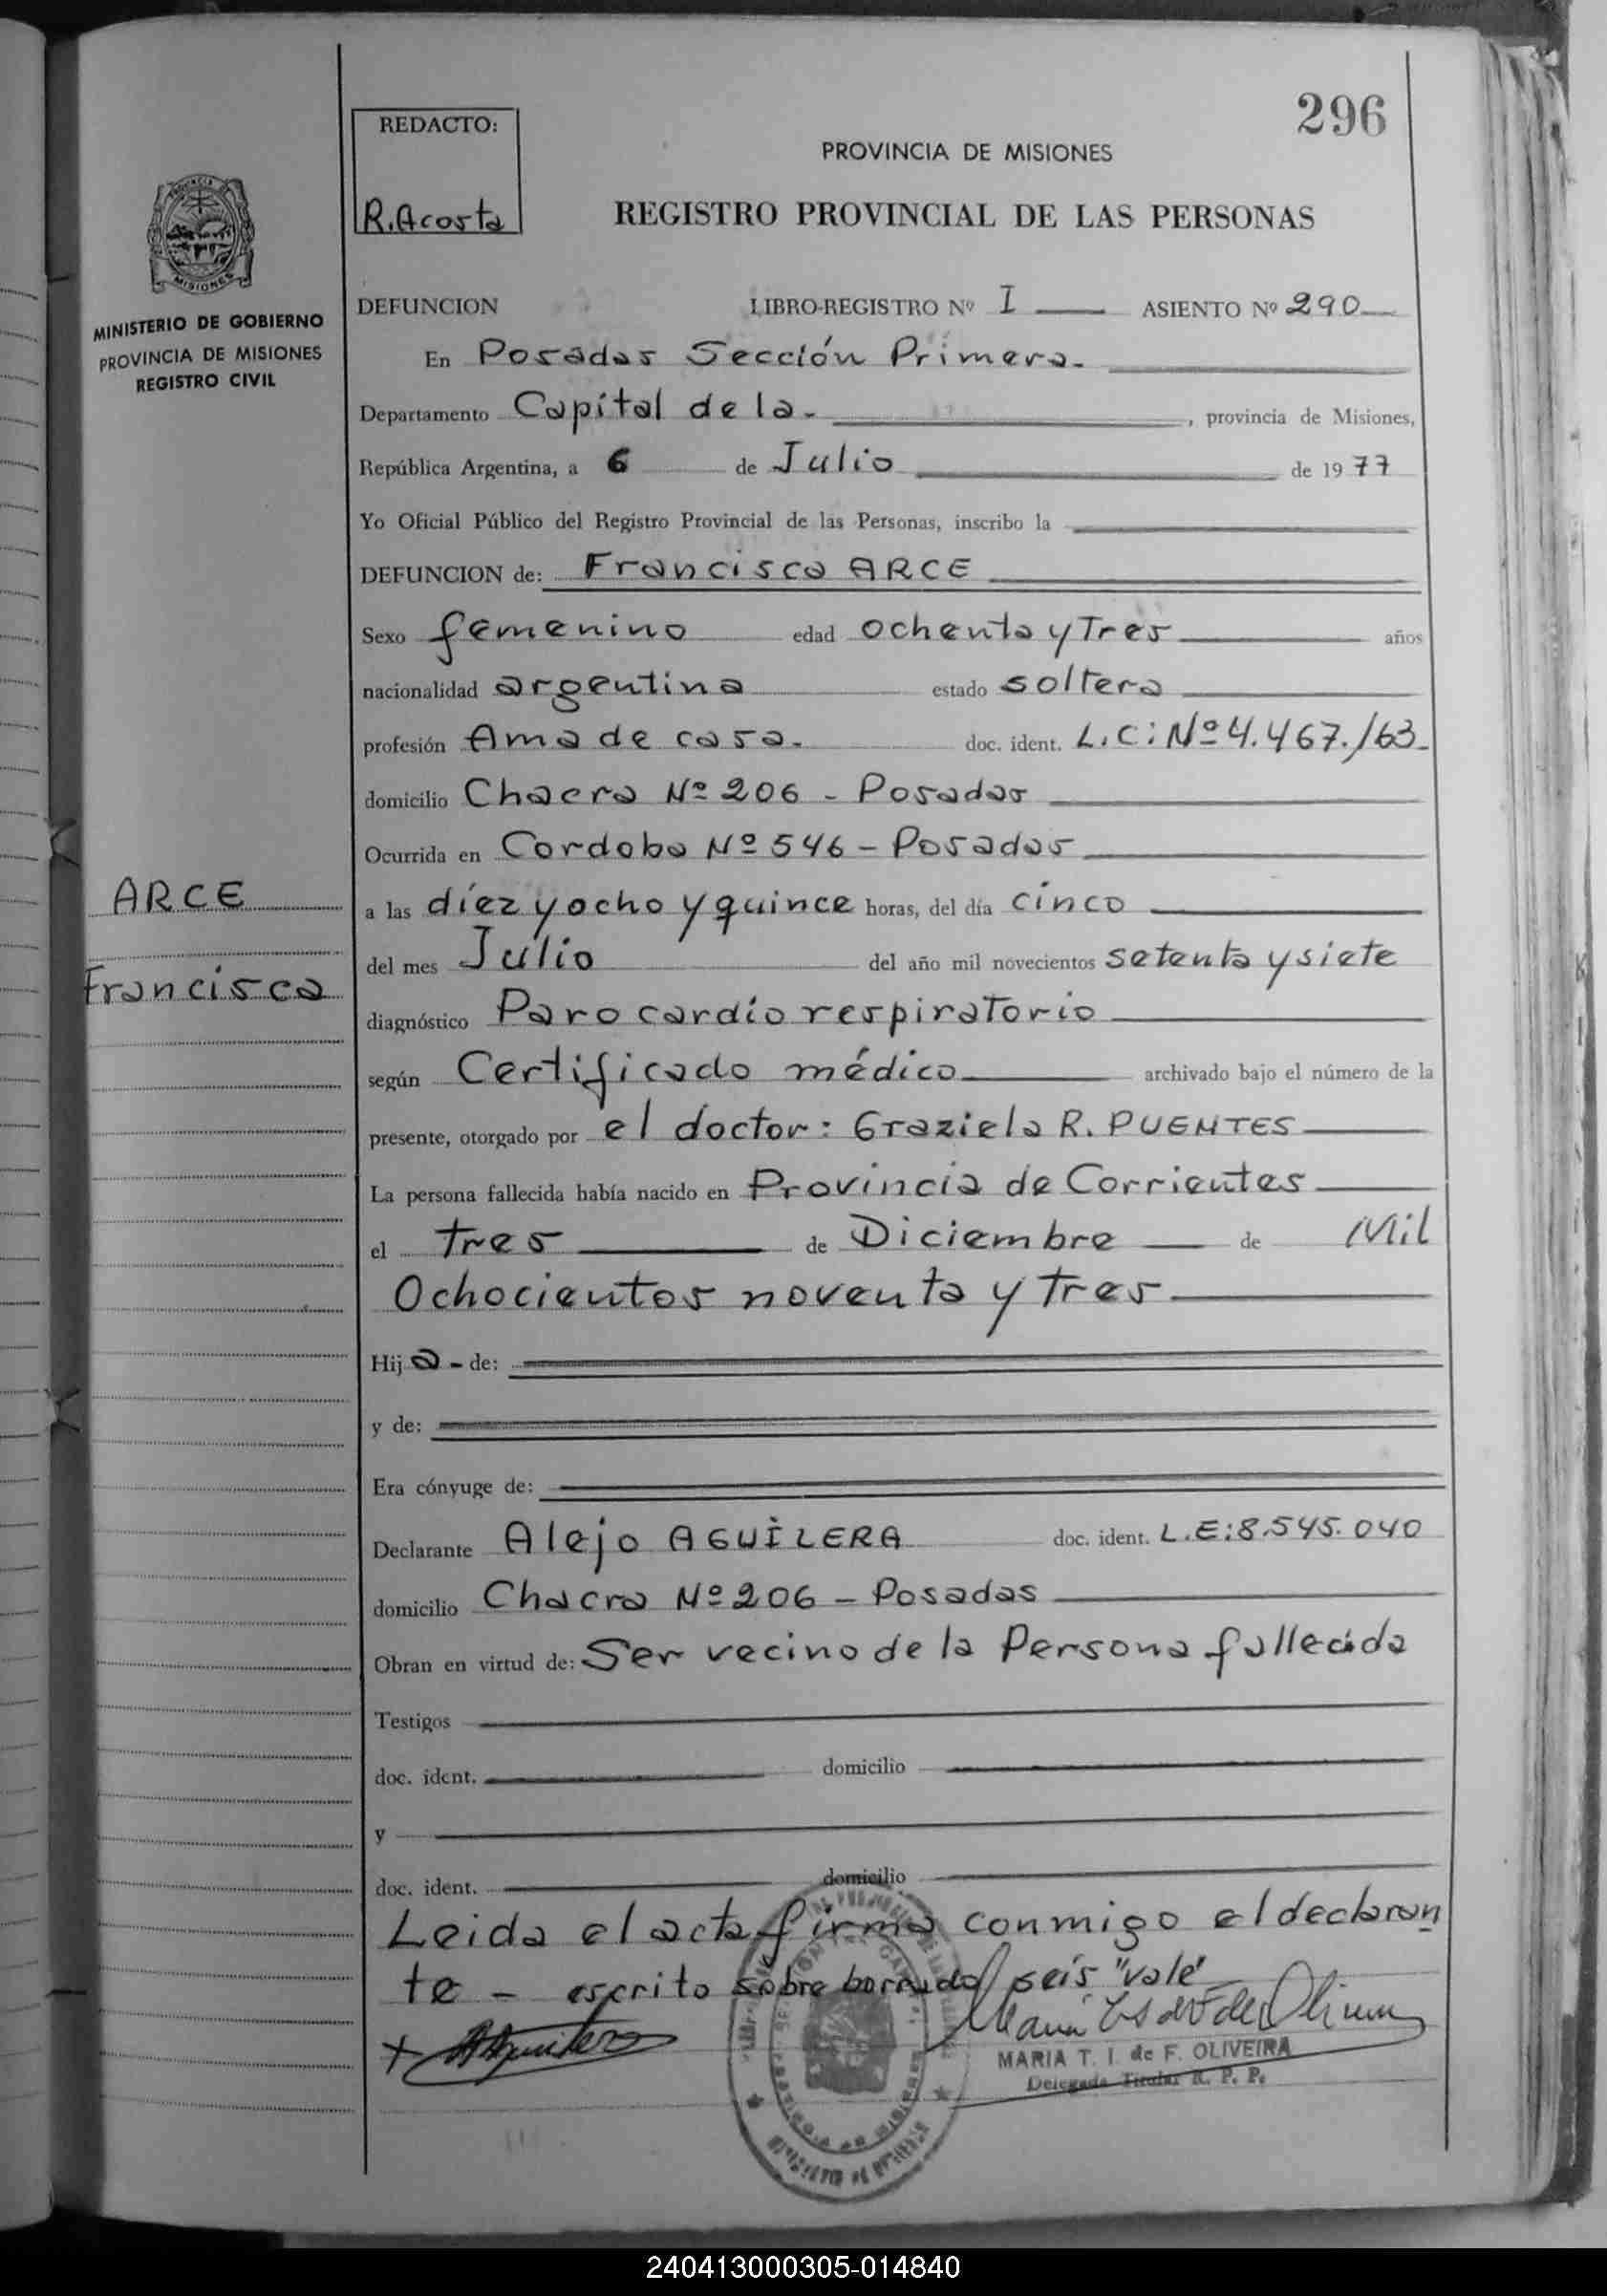 296
REDACTO:
R. Acosta
PROVINCIA DE MISIONES
REGISTRO PROVINCIAL DE LAS PERSONAS
PROVINCIA DE
MISIONES
MINISTERIO DE GOBIERNO
PROVINCIA DE MISIONES
REGISTRO CIVIL
DEFUNCION LIBRO-REGISTRO Nº I ASIENTO Nº 290
En Posadas Sección Primera.
Departamento Capital de la. , provincia de Misiones,
República Argentina, a 6 de Julio de 1977
Yo Oficial Público del Registro Provincial de las Personas, inscribo la
DEFUNCION de: Francisca ARCE
Sexo femenino edad ochenta y Tres años
nacionalidad argentina estado soltera
profesión Ama de casa. doc. ident. L.C: Nº 4.467.163.
domicilio Chacra Nº 206 - Posadas
Ocurrida en Cordoba Nº 546 - Posadas
ARCE
Francisca
a las díez y ocho y quince horas, del día cinco
del mes Julio del año mil novecientos setenta y siete
diagnóstico Paro cardio respiratorio
según Certificado médico archivado bajo el número de la
presente, otorgado por el doctor: Graziela R. PUENTES
La persona fallecida había nacido en Provincia de Corrientes
el tres de Diciembre de Mil
Ochocientos noventa y tres
Hija - de:
y de:
Era cónyuge de:
Declarante Alejo AGUILERA doc. ident. L.E: 8.545.040
domicilio Chacra Nº 206 - Posadas
Obran en virtud de: Ser vecino de la Persona fallecida
Testigos
doc. ident. domicilio
y
doc. ident. domicilio
Leida el acta firma conmigo el declaran
te - escrito sobre borrado/ seis "vale"
MARIA T. I. de F. OLIVEIRA
Delegada Titular R. P. P.
240413000305-014840